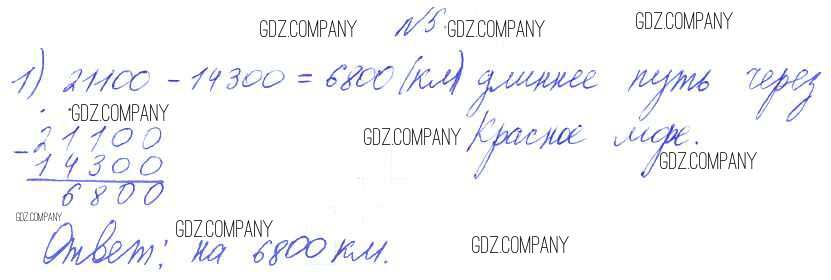 GDZ.COMPANY №5. GDZ.COMPANY GDZ.COMPANY
1) 21100 - 14300 = 6800 (км) длиннее путь через
GDZ.COMPANY GDZ.COMPANY Красное море.
GDZ.COMPANY
- 21100
14300
6800
GDZ.COMPANY GDZ.COMPANY GDZ.COMPANY
Ответ: на 6800 км.